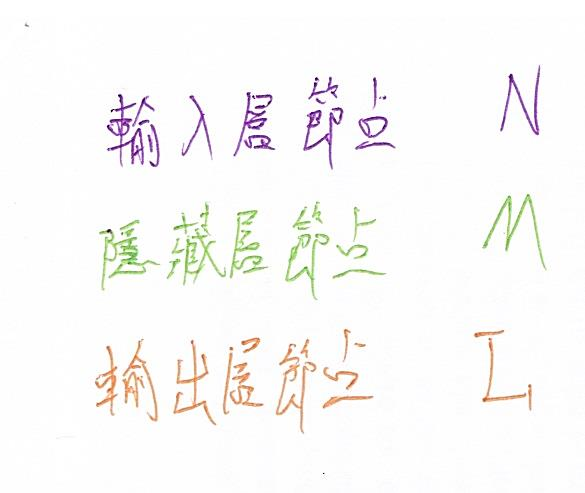 輸入層節点 N
隱藏層節点 M
輸出層節点 L